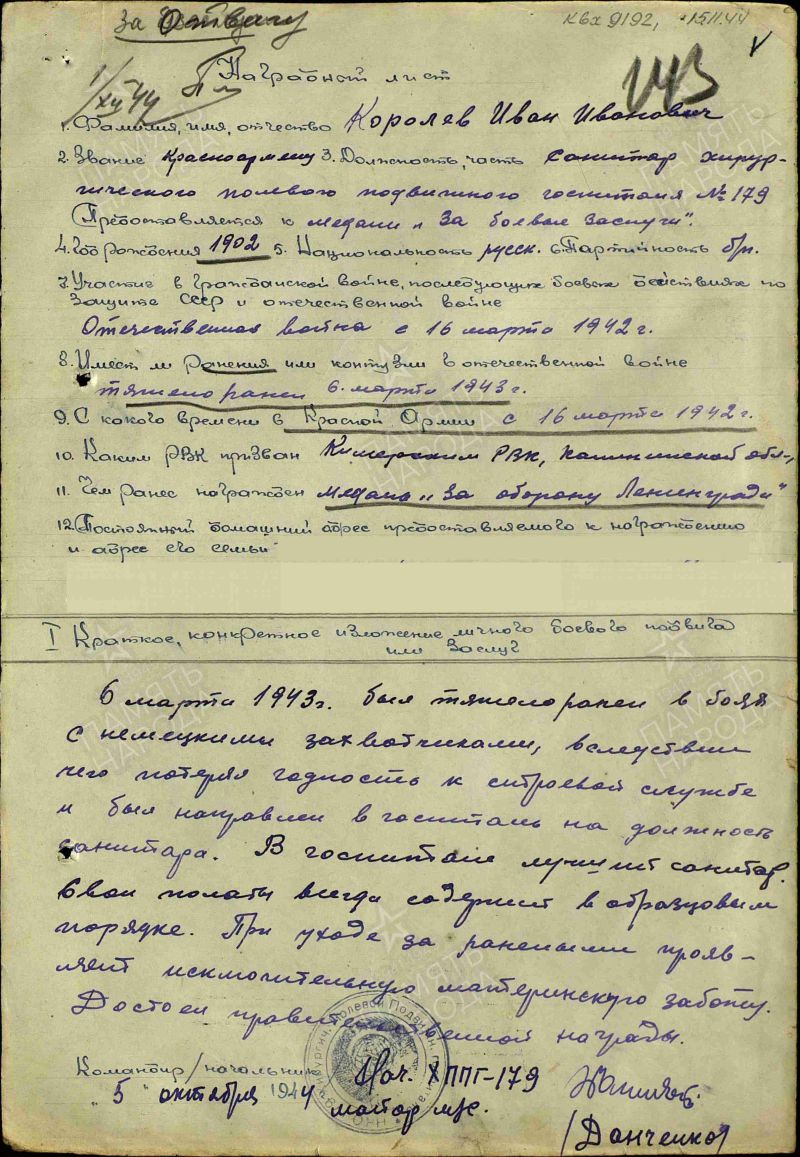 За Отвагу
КВх 9192, 15.11.44
1/XII 44
Наградной лист
1. Фамилия, имя, отчество Королев Иван Иванович
2. Звание красноармеец 3. Должность, часть санитар хирур-
гического полевого подвижного госпиталя № 179
Представляется к медали "За боевые заслуги".
4. Год рождения 1902 5. Национальность русск. 6. Партийность б/п.
7. Участие в гражданской войне, последующих боевых действиях по
защите СССР и отечественной войне
Отечественная война с 16 марта 1942 г.
8. Имеет ли ранения или контузии в отечественной войне
тяжело ранен 6 марта 1943 г.
9. С какого времени в Красной Армии с 16 марта 1942 г.
10. Каким РВК призван Кимерским РВК, Калининской обл.,
11. Чем ранее награжден медаль "За оборону Ленинграда"
12. Постоянный домашний адрес представляемого к награждению
и адрес его семьи
I Краткое, конкретное изложение личного боевого подвига
или заслуг
6 марта 1943 г. был тяжело ранен в боях
с немецкими захватчиками, вследствии
чего потерял годность к строевой службе
и был направлен в госпиталь на должность
санитара. В госпитале лучший санитар.
Свои палаты всегда содержит в образцовым
порядке. При уходе за ранеными прояв-
ляет исключительную материнскую заботу.
Достоен правительственной награды.
Командир/начальник Нач. ХППГ-179
"5" октября 1944 майор м/с.
/Данченко/
ПАМЯТЬ НАРОДА